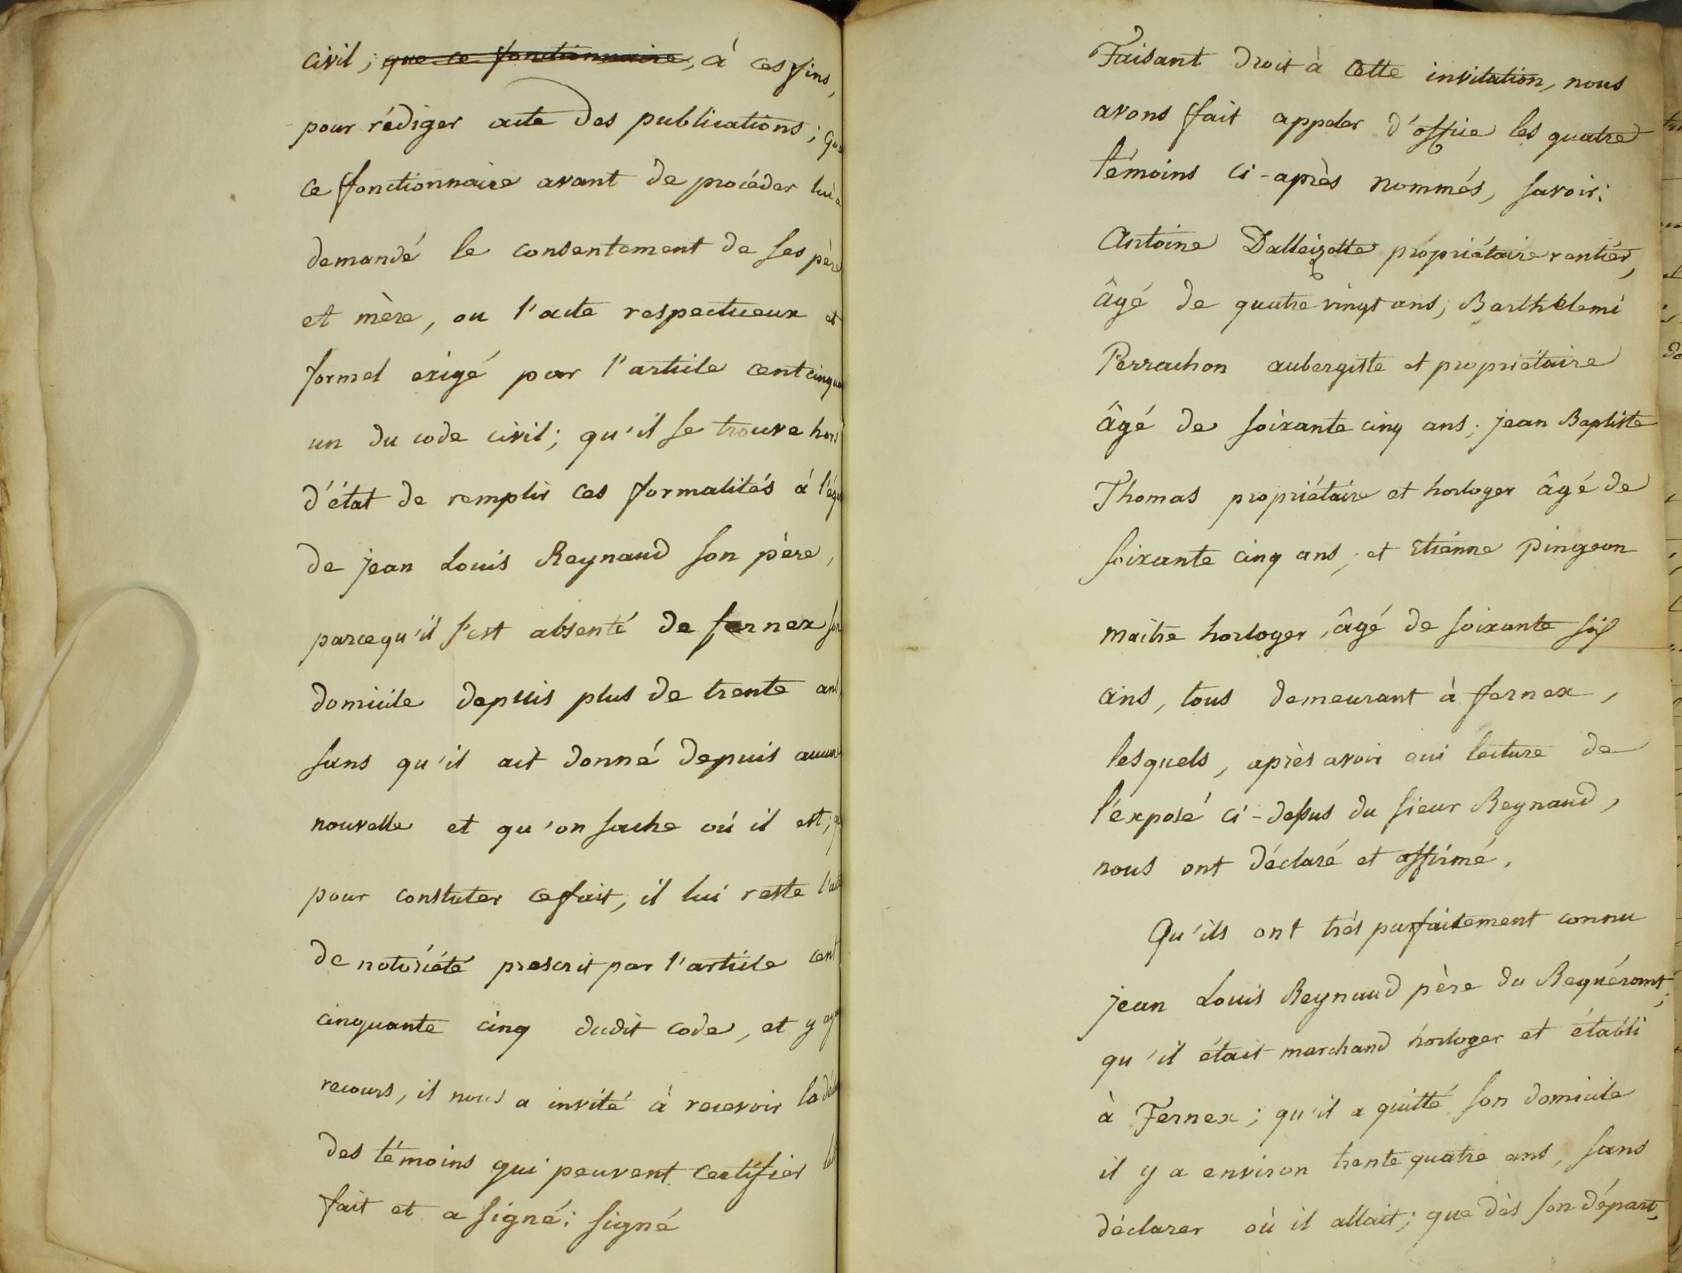 civil; que ce fonctionnaire, à ces fins,
pour rédiger acte des publications; que
ce fonctionnaire avant de procéder lui a
demandé le consentement de ses père
et mère, ou l'acte respectueux et
formel exigé par l'article cent cinqu
un du code civil; qu'il se trouve hors
d'état de remplir ces formalités à l'ég
de jean Louis Reynaud son père,
parcequ'il s'est absenté de fernex son
domicile depuis plus de trente ans
sans qu'il ait donné depuis aucune
nouvelle et qu'on sache où il est;
pour constater ce fait, il lui reste l'a
de notoriété prescrit par l'article cent
cinquante cinq dudit code, et y ay
recours, il nous a invité à recevoir la dé
des témoins qui peuvent certifier
fait et a signé; signé
Faisant droit à cette invitation, nous
avons fait appeler d'office les quatre
témoins ci-après nommés, savoir:
Antoine Dalleizette propriétaire rentier,
âgé de quatre vingt ans; Barthélemi
Perrachon aubergiste et propriétaire
âgé de soixante cinq ans; jean Baptiste
Thomas propriétaire et horloger âgé de
soixante cinq ans; et Etiénne Pingeon
maitre horloger, âgé de soixante six
ans, tous demeurant à fernex,
lesquels, après avoir oui lecture de
l'exposé ci-dessus du sieur Reynaud,
nous ont déclaré et affirmé.
Qu'ils ont trés parfaitement connu
jean Louis Reynaud père du Requérant;
qu'il était marchand horloger et établi
à Fernex; qu'il a quitté son domicile
il y a environ trente quatre ans, sans
déclarer où il allait; que dès son départ,